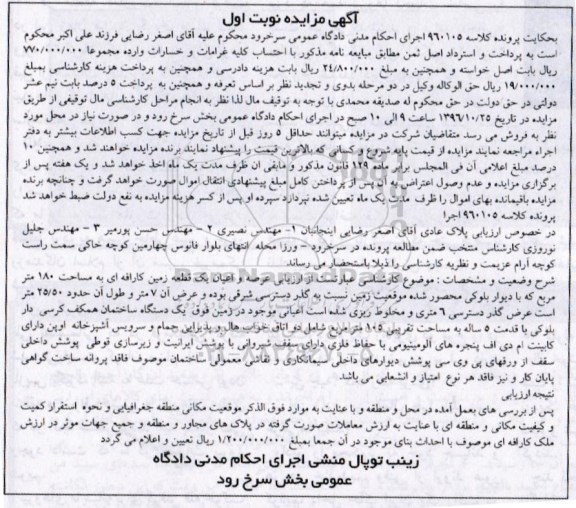 آگهی مزایده نوبت اول
بحکایت پرونده کلاسه ۹۶۰۱۰۵ اجرای احکام مدنی دادگاه عمومی سرخرود محکوم علیه آقای اصغر رضایی فرزند علی اکبر محکوم
است به پرداخت و استرداد اصل ثمن مطابق مبایعه نامه مذکور با احتساب کلیه غرامات و خسارات وارده مجموعا ۷۷۰/۰۰۰/۰۰۰
ریال بابت اصل خواسته و همچنین به مبلغ ۲۴/۸۰۰/۰۰۰ ریال بابت هزینه دادرسی و همچنین به پرداخت هزینه کارشناسی بمبلغ
۱۹/۰۰۰/۰۰۰ ریال حق الوکاله وکیل در دو مرحله بدوی و تجدید نظر بر اساس تعرفه و همچنین به پرداخت ۵ درصد بابت نیم عشر
دولتی در حق دولت در حق محکوم له صدیقه محمدی با توجه به توقیف مال لذا نظر به انجام مراحل کارشناسی مال توقیفی از طریق
مزایده در تاریخ ۱۳۹۶/۱۰/۲۵ ساعت ۹ الی ۱۰ صبح در اجرای احکام دادگاه عمومی بخش سرخ رود و در صورت نیاز در محل مورد
نظر به فروش می رسد. متقاضیان شرکت در مزایده میتوانند حداقل ۵ روز قبل از تاریخ مزایده جهت کسب اطلاعات بیشتر به دفتر
اجراء مراجعه نمایند مزایده از قیمت پایه شروع و کسانی که بالاترین قیمت را پیشنهاد نمایند برنده مزایده خواهند شد و همچنین ۱۰
درصد مبلغ اعلامی آن فی المجلس برابر ماده ۱۲۹ قانون مذکور و مابقی ان ظرف مدت یک ماه اخذ خواهد شد و یک هفته پس از
برگزاری مزایده و عدم وصول اعتراض به آن پس از پرداختن کامل مبلغ پیشنهادی انتقال اموال صورت خواهد گرفت و چنانچه برنده
مزایده باقیمانده بهای اموال را ظرف مدت یک ماه تعیین شده نپردازد سپرده او پس از کسر هزینه مزایده به نفع دولت ضبط خواهد شد
پرونده کلاسه ۹۶۰۱۰۵ اجرا
در خصوص ارزیابی پلاک عادی آقای اصغر رضایی اینجانبان ۱- مهندس نصیری ۲- مهندس حسن پورمیر ۳- مهندس جلیل
نوروزی کارشناس منتخب ضمن مطالعه پرونده در سرخرود - ورزا محله انتهای بلوار فانوس چهارمین کوچه خاکی سمت راست
کوچه آرام عزیمت و نظریه کارشناسی را ذیلا باستحضار می رساند
شرح وضعیت و مشخصات : موضوع کارشناسی عبارتست از ارزیابی عرصه و اعیان یک قطعه زمین کارافه ای به مساحت ۱۸۰ متر
مربع که با دیوار بلوکی محصور شده موقعیت زمین نسبت به گذر دسترسی شرقی بوده و عرض آن ۷ متر و طول آن حدود ۲۵/۵۰ متر
است عرض گذر دسترسی ۶ متری و مخلوط ریزی شده است اعیانی موجود در زمین فوق یک دستگاه ساختمان همکف کرسی دار
بلوکی با قدمت ۵ ساله به مساحت تقریبی ۱۰۵ متر مربع شامل دو اتاق خواب هال و پذیرایی حمام و سرویس آشپزخانه اوپن دارای
کابینت ام دی اف پنجره های آلومینیومی با حفاظ فلزی دارای سقف شیروانی با پوشش ایرانیت و زیرسازی توفال پوشش داخلی
سقف از ورقهای پی وی سی پوشش دیوارهای داخلی سیمانکاری و نقاشی معمولی ساختمان موصوف فاقد پروانه ساخت گواهی
پایان کار و نیز فاقد هر نوع امتیاز و انشعابی می باشد.
نتیجه ارزیابی
پس از بررسی های بعمل آمده در محل و منطقه و با عنایت به موارد فوق الذکر موقعیت مکانی منطقه جغرافیایی و نحوه استقرار کمیت
و کیفیت مکانی و منطقه ای با عنایت به ارزش معاملات صورت گرفته در پلاک های مجاور و منطقه و جمیع جهات موثر در ارزش
ملک کارافه ای موصوف با احداث بنای موجود در آن جمعا بمبلغ ۱/۲۰۰/۰۰۰/۰۰۰ ریال تعیین و اعلام می گردد
زینب توپال منشی اجرای احکام مدنی دادگاه
عمومی بخش سرخ رود